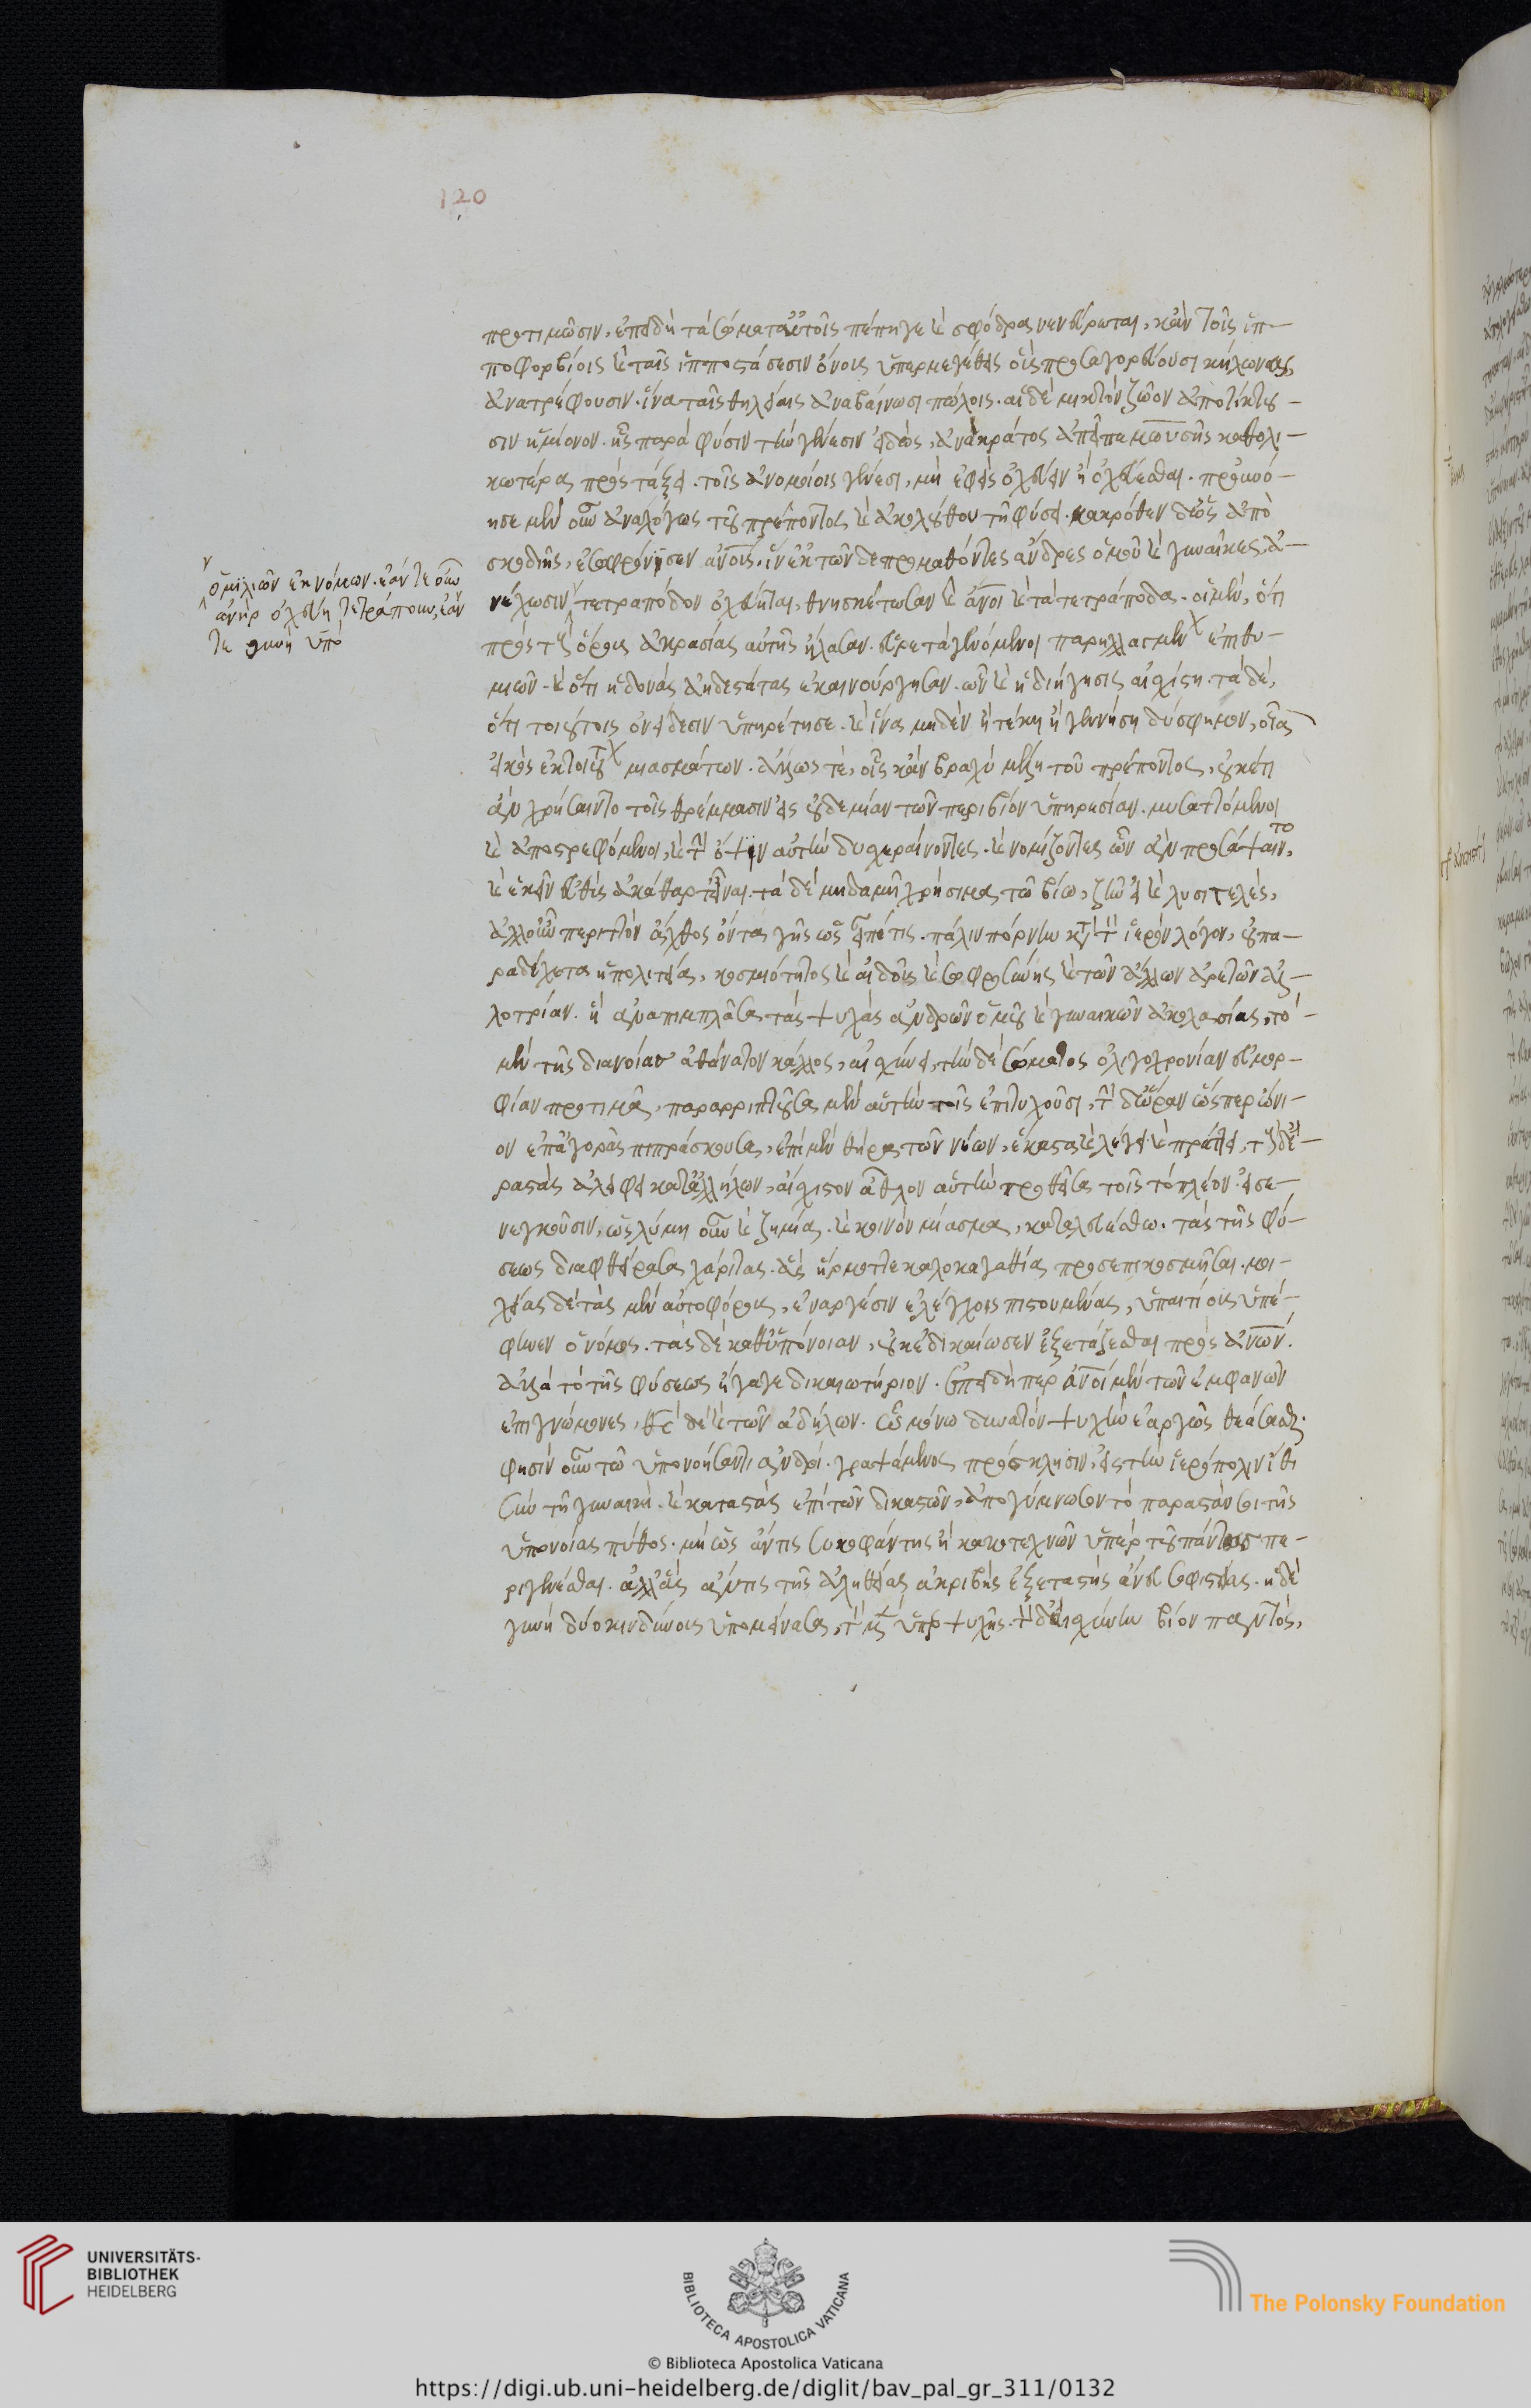 120
προτιμῶσιν, ἐπειδὴ τὰ σώματα αὐτοῖς πέπηγε καὶ σφόδρα νενεύρωται, κἀν τοῖς ἱπ-
ποφορβίοις καὶ ταῖς ἱπποστάσεσιν ὄνους ὑπερμεγέθεις οὓς προσαγορεύουσι κήλωνας,
ἀνατρέφουσιν. ἵνα ταῖς θηλείαις ἀναβαίνωσι πώλοις. αἱ δὲ μικτὸν ζῶον ἀποτίκτου-
σιν ἡμίονον. ἧς παρὰ φύσιν τὴν γένεσιν εἰδὼς, ἀνὰ κράτος ἀπεῖπε μωυσῆς καθολι-
κωτέρα προστάξει. τοῖς ἀνομοίοις γένεσι, μὴ ἐφεὶς ὀχεύειν ἢ ὀχεύεσθαι. προὐνό-
ησε μὲν οὖν ἀναλόγως τοῦ πρέποντος καὶ ἀκολούθου τῇ φύσει. μακρόθεν δὲ ὡς ἀπὸ
σκοπιῆς, ἐσωφρόνησεν ἀνους. ἵν' ἐκ τῶνδε προμαθόντες ἄνδρες ὁμοῦ καὶ γυναῖκες, ἀ-
νέχωσιν τετραπόδον ὀχεύηται, θνησκέτωσαν καὶ ἄνοι καὶ τὰ τετράποδα. οἱ μὲν, ὅτι
ὁμιλιῶν ἐκνόμων. ἐάν τε οὖν
ἀνὴρ ὀχεύῃ τετράπουν, ἐάν
τε γυνὴ ὑπὸ
πρὸς τοὺς ὅρους ἀκρασίας αὐτῆς ἤλασαν. εὑρεταὶ γενόμενοι παρηλλαγμένων ἐπιθυ-
μιῶν. καὶ ὅτι ἡδονὰς ἀηδεστάτας ἐκαινούργησαν. ὧν καὶ ἡ διήγησις αἰσχίστη. τὰ δὲ,
ὅτι τοιούτοις ὀνείδεσιν ὑπηρέτησε. καὶ ἵνα μηδὲν ἢ τέκη ἢ γεννήση δύσφημον, οἷα
εἰκὸς ἐκ τοιούτων μιασμάτων. ἄλλως τὲ, οἷς κἂν βραχὺ μέλῃ τοῦ πρέποντος, οὐκέτι
ἂν χρήσαιντο τοῖς θρέμμασιν εἰς οὐδεμίαν τῶν περὶ βίον ὑπηρεσίαν. μυσαττόμενοι
καὶ ἀποστρεφόμενοι, καὶ τὴν ὄψιν αὐτὴν δυσχεραίνοντες. καὶ νομίζοντες ὧν ἂν προσάψαιντο,
καὶ ἐκεῖν' εὐθὺς ἀκάθαρτ' εἶναι. τὰ δὲ μηδαμῆ χρήσιμα τῶ βίω, ζῆν εἰ καὶ λυσιτελὲς,
ἀλλ' οὖν περιττὸν ἄχθος ὄντα γῆς ὡς εἶπέ τις. πάλιν πόρνην κατὰ τὸν ἱερὸν λόγον, οὐ πα-
ραδέχεται ἡ πολιτεία, κοσμιότητος καὶ αἰδοῦς καὶ σωφροσύνης καὶ τῶν ἄλλων ἀρετῶν ἀλ-
λοτρίαν. ἣ ἀναπιμπλᾶσα τὰς ψυχὰς ἀνδρῶν ὁμοῦ καὶ γυναικῶν ἀκολασίας, τὸ
μὲν τῆς διανοίας ἀθάνατον κάλλος, αἰσχύνει, τὴν δὲ σώματος ὀλιγοχρονίαν εὐμορ-
φίαν προτιμᾶ, παραρριπτοῦσα μὲν αὑτὴν τοῖς ἐπιτυχοῦσι, τὴν δ' ὥραν ὥσπερ ὤνι-
ον ἐπ' ἀγορᾶς πιπράσκουσα, ἐπὶ μὲν θήρα τῶν νέων, ἕκαστα καὶ λέγει καὶ πράττει, τοὺς δ' ἐ-
ραστὰς ἀλείφει κατ' ἀλλήλων, αἴσχιστον ἆθλον αὑτὴν προθεῖσα τοῖς τὸ πλέον εἰσε-
νεγκοῦσιν, ὡς λύμη οὖν καὶ ζημία. καὶ κοινὸν μίασμα, καταλευέσθω. τὰς τῆς φύ-
σεως διαφθείρασα χάριτας. ἃς ἥρμοττε καλοκαγαθία προσεπικοσμῆσαι. μοι-
χείας δὲ τὰς μὲν αὐτοφώρους, ἐναργέσιν ἐλέγχοις πιστουμένας, ὑπαιτίους ὑπέ-
φηνεν ὁ νόμος. τὰς δὲ καθ' ὑπόνοιαν, οὐκ ἐδικαίωσεν ἐξετάζεσθαι πρὸς ἀνων.
ἀλλὰ τὸ τῆς φύσεως ἤγαγε δικαιωτήριον. ἐπειδήπερ ἄνοι μὲν τῶν ἐμφανῶν
ἐπιγνώμονες, θς δὲ καὶ τῶν ἀδήλων. ὧ μόνω δυνατὸν ψυχὴν ἐναργῶς θεάσασθαι.
φησὶν οὖν τῶ ὑπονοήσαντι ἀνδρί. γραψάμενος πρόσκλησιν, εἰς τὴν ἱερόπολιν ἴθι
σὺν τῆ γυναικί. καὶ καταστὰς ἐπὶ τῶν δικαστῶν, ἀπογύμνωσον τὸ παραστάν σοι τῆς
ὑπονοίας πάθος. μὴ ὡς ἄν τις συκοφάντης ἢ κακοτεχνῶν ὑπὲρ τοῦ πάντως πε-
ριγενέσθαι. ἀλλ' ὡς ἄν τις τῆς ἀληθείας ἀκριβὴς ἐξεταστὴς ἄνευ σοφιστείας. ἡ δὲ
γυνὴ δύο κινδύνους ὑπομείνασα, τὸν μὲν ὑπὲρ ψυχῆς. τὸν δ' αἰσχύνην βίον παντός,
UNIVERSITÄTS-
BIBLIOTHEK
HEIDELBERG
BIBLIOTECA APOSTOLICA VATICANA
The Polonsky Foundation
© Biblioteca Apostolica Vaticana
https://digi.ub.uni-heidelberg.de/diglit/bav_pal_gr_311/0132